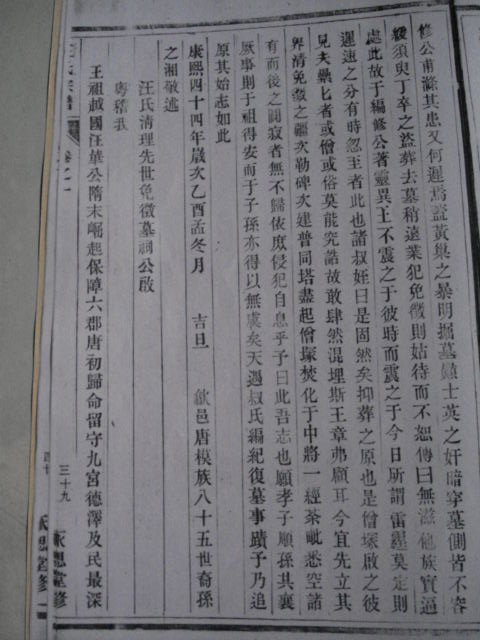 修公甫滌其患又何遲焉蓋黃巢之暴明掘墓顛士英之奸暗穿墓側皆不容
緩須臾丁卒之盜葬去墓稍遠業犯免徵則姑待而不恕傳曰無滋他族實逼
處此故于編修公著靈異王不震之于彼時而震之于今日所謂雷霆莫定則
遲速之分有時忽至者此也諸叔姪曰是固然矣抑葬之原也是僧塚啟之彼
見夫纍匕者或僧或俗莫能究詰故敢肆然混埋斯王章弗顧耳今宜先立其
界清免徵之疆次勒碑次建普同塔盡起僧塚焚化于中將一經荼毗悉空諸
有而後之嗣寂者無不歸依庶侵犯自息乎予曰此吾志也願孝子順孫其襄
厥事則于祖得安而于子孫亦得以無虞矣天遇叔氏編紀復墓事蹟予乃追
原其始志如此
康熙四十四年歲次乙酉孟冬月 吉旦 歙邑唐模族八十五世裔孫
之湘敬述
汪氏清理先世免徵墓祠公啟
粵稽我
王祖越國汪華公隋末崛起保障六郡唐初歸命留守九宮德澤及民最深
汪氏宗譜 卷之一
三十九 永思堂修